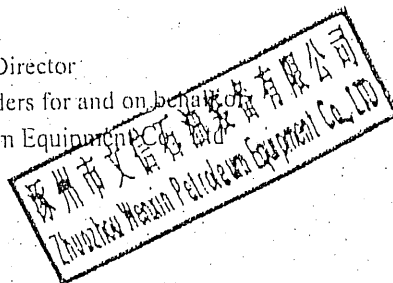 Director
ders for and on behalf of
m Equipment Co., Ltd
涿州市文信石油设备有限公司
Zhuozhou Wenxin Petroleum Equipment Co., LTD